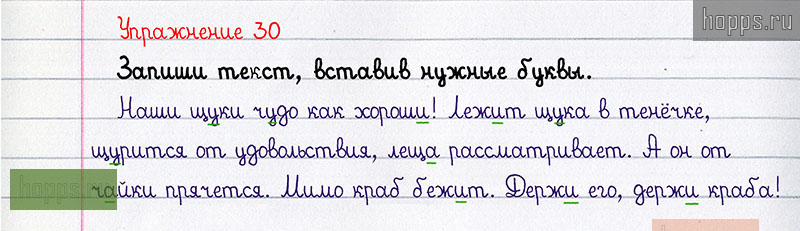 hopps.ru
Упражнение 30
Запиши текст, вставив нужные буквы.
Наши щуки чудо как хороши! Лежит щука в тенёчке,
щурится от удовольствия, леща рассматривает. А он от
чайки прячется. Мимо краб бежит. Держи его, держи краба!
hopps.ru